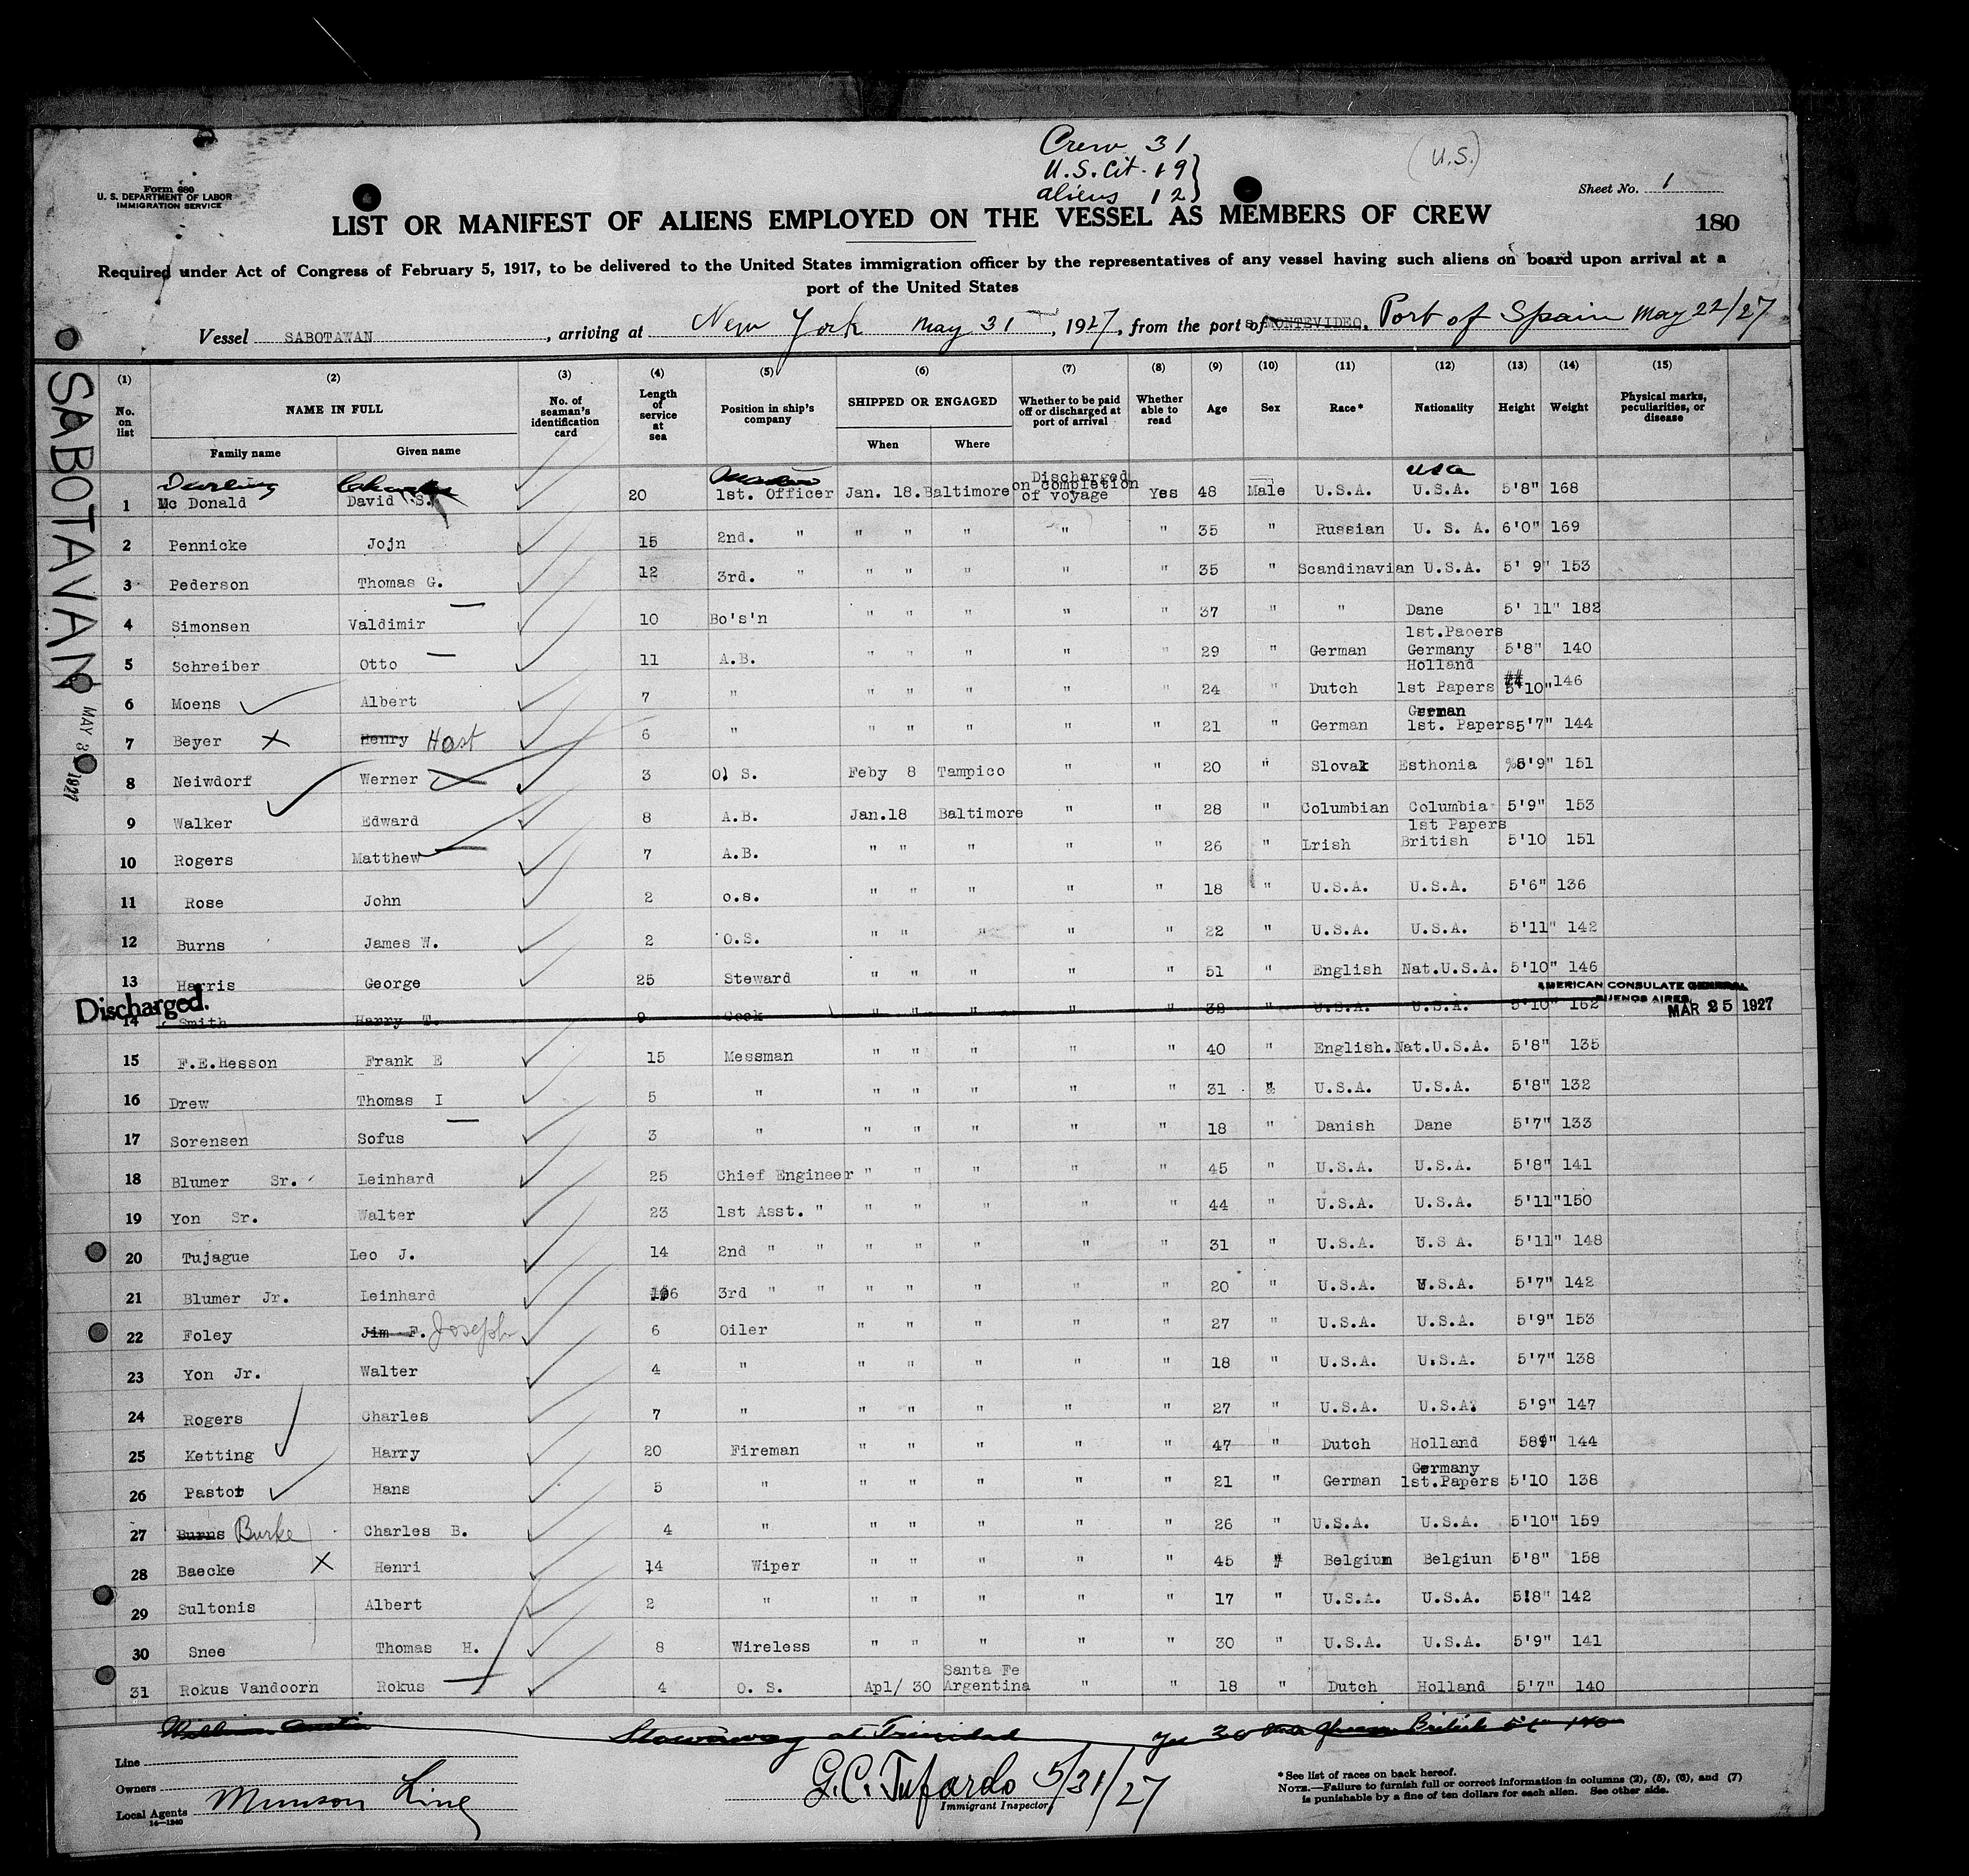 Crew 31
U.S. Cit. 19
aliens 12
(U.S.)
Form 680
U. S. DEPARTMENT OF LABOR
IMMIGRATION SERVICE
Sheet No. 1
LIST OR MANIFEST OF ALIENS EMPLOYED ON THE VESSEL AS MEMBERS OF CREW
180
Required under Act of Congress of February 5, 1917, to be delivered to the United States immigration officer by the representatives of any vessel having such aliens on board upon arrival at a
port of the United States
Vessel SABOTAWAN, arriving at New York May 31, 1927, from the port of MONTEVIDEO. Port of Spain May 22/27
SABOTAVAN
(1) (2) (3) (4) (5) (6) (7) (8) (9) (10) (11) (12) (13) (14) (15)
No. on list NAME IN FULL No. of seaman's identification card Length of service at sea Position in ship's company SHIPPED OR ENGAGED Whether to be paid off or discharged at port of arrival Whether able to read Age Sex Race* Nationality Height Weight Physical marks, peculiarities, or disease
Family name Given name When Where
Darling USA
1 Mc Donald David S. 20 1st. Officer Jan. 18. Baltimore Discharged on completion of voyage Yes 48 Male U.S.A. U.S.A. 5'8" 168
2 Pennicke Jojn 15 2nd. " " " " " " 35 " Russian U. S. A. 6'0" 169
3 Pederson Thomas G. 12 3rd. " " " " " " 35 " Scandinavian U.S.A. 5' 9" 153
4 Simonsen Valdimir 10 Bo's'n " " " " " 37 " " Dane 5' 11" 182
5 Schreiber Otto 11 A.B. " " " " " 29 " German 1st.Papers Germany 5'8" 140
6 Moens Albert 7 " " " " " " 24 " Dutch Holland 1st Papers 5'10" 146
7 Beyer Henry Host 6 " " " " " " 21 " German German 1st. Papers 5'7" 144
8 Neiwdorf Werner 3 O. S. Feby 8 Tampico " " 20 " Slovak Esthonia 5'9" 151
9 Walker Edward 8 A.B. Jan.18 Baltimore " " 28 " Columbian Columbia 5'9" 153
10 Rogers Matthew 7 A.B. " " " " " 26 " Irish 1st Papers British 5'10 151
11 Rose John 2 o.s. " " " " " 18 " U.S.A. U.S.A. 5'6" 136
12 Burns James W. 2 O.S. " " " " " 22 " U.S.A. U.S.A. 5'11" 142
13 Harris George 25 Steward " " " " " 51 " English Nat.U.S.A. 5'10" 146
Discharged. AMERICAN CONSULATE GENERAL BUENOS AIRES MAR 25 1927
14 Smith Harry T. 9 Cook " " " " " 38 " U.S.A. U.S.A. 5'10" 152
15 F.E.Hesson Frank E 15 Messman " " " " " 40 " English. Nat.U.S.A. 5'8" 135
16 Drew Thomas I 5 " " " " " " 31 " U.S.A. U.S.A. 5'8" 132
17 Sorensen Sofus 3 " " " " " " 18 " Danish Dane 5'7" 133
18 Blumer Sr. Leinhard 25 Chief Engineer " " " " " 45 " U.S.A. U.S.A. 5'8" 141
19 Yon Sr. Walter 23 1st Asst. " " " " " " 44 " U.S.A. U.S.A. 5'11" 150
20 Tujague Leo J. 14 2nd " " " " " " " 31 " U.S.A. U.S A. 5'11" 148
21 Blumer Jr. Leinhard 6 3rd " " " " " " " 20 " U.S.A. U.S.A. 5'7" 142
22 Foley Jim F. Joseph 6 Oiler " " " " " 27 " U.S.A. U.S.A. 5'9" 153
23 Yon Jr. Walter 4 " " " " " " 18 " U.S.A. U.S.A. 5'7" 138
24 Rogers Charles 7 " " " " " " 27 " U.S.A. U.S.A. 5'9" 147
25 Ketting Harry 20 Fireman " " " " " 47 " Dutch Holland 589" 144
26 Pastor Hans 5 " " " " " " 21 " German Germany 1st.Papers 5'10 138
27 Burns Burke Charles B. 4 " " " " " " 26 " U.S.A. U.S.A. 5'10" 159
28 Baecke Henri 14 Wiper " " " " " 45 " Belgium Belgiun 5'8" 158
29 Sultonis Albert 2 " " " " " " 17 " U.S.A. U.S.A. 5'8" 142
30 Snee Thomas H. 8 Wireless " " " " " 30 " U.S.A. U.S.A. 5'9" 141
31 Rokus Vandoorn Rokus 4 O. S. Apl/ 30 Santa Fe Argentina " " 18 " Dutch Holland 5'7" 140
William Austin Stowaway at Trinidad British
Line
Owners
Local Agents Munson Line
14—1240
G.C. Tufardo 5/31/27
Immigrant Inspector
* See list of races on back hereof.
NOTE.—Failure to furnish full or correct information in columns (2), (5), (6), and (7)
is punishable by a fine of ten dollars for each alien. See other side.